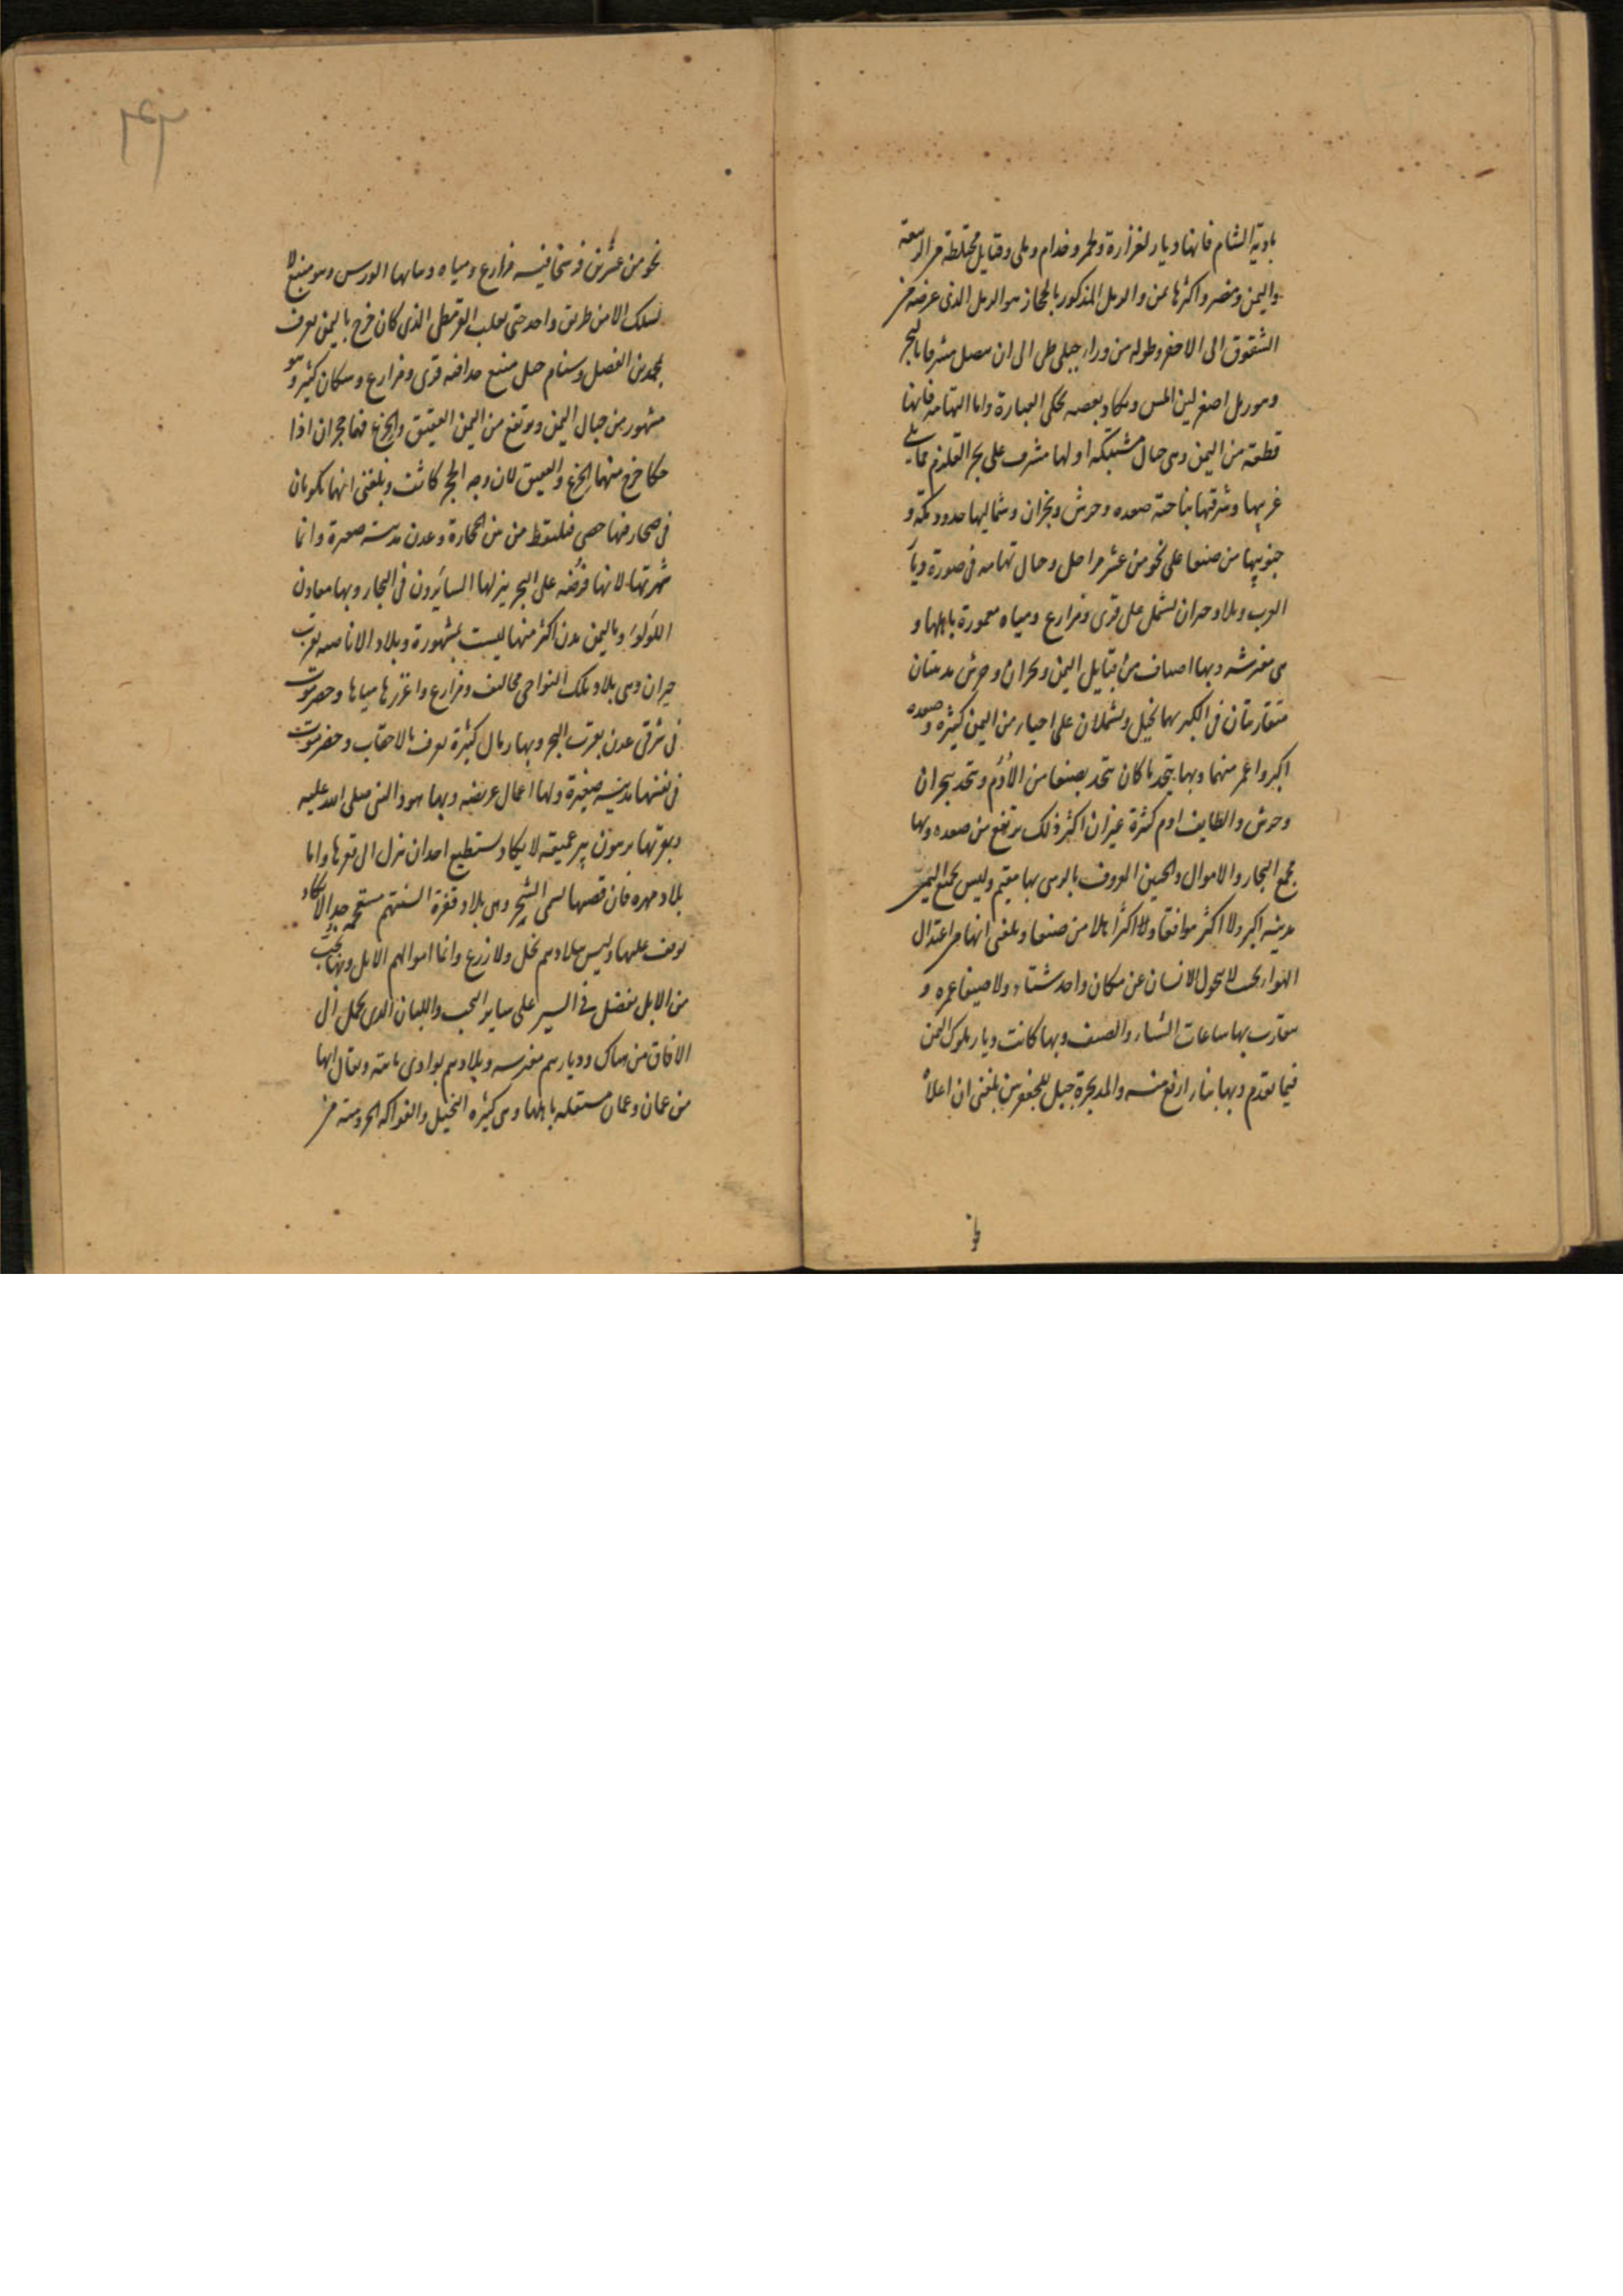 بادية الشام فانها ديار لفزارة ولخم وجذام وبلى وقبايل مختلطة من ربيعة
واليمن ومضر واكثرها يمن والرمل المذكور بالحجاز هو الرمل الذى عرضه من
الشقوق الى الاجفر وطوله من وراء جبلى طى الى ان يتصل مشرقا بالبحر
وهو رمل اصفر لين المس ويكاد بعضه يحكى الغبارة واما التهامة فانها
قطعة من اليمن وهى جبال مشتبكة اولها مشرف على بحر القلزم مما يلى
غربيها وشرقيها بناحية صعده وجرش ونجران وشماليها حدود مكة و
جنوبيها من صنعا على نحو من عشر مراحل وجبال تهامه فى صورة ديار
العرب وبلاد خيوان تشتمل على قرى ومزارع ومياه معمورة باهلها و
هى مفترشه وبها اصناف من قبايل اليمن ونجران وجرش مدينتان
متقاربتان فى الكبر بهما نخيل ويشتملان على احياء من اليمن كثيرة وصعده
اكبر واعمر منهما وبها يتخذ ما كان يتخذ بصنعا من الأدم ويتخذ بنجران
وجرش والطايف ادم كثيرة غير ان اكثر ذلك يرتفع من صعده وبها
مجمع التجار والاموال والحسين المعروف بالرسى بها مقيم وليس بجميع اليمن
مدينه اكبر ولا اكثر مرافقا ولا اكثر اهلا من صنعا وبلغنى انها من اعتدال
الهواء بحيث لا يتحول الانسان عن مكان واحد شتاء ولا صيفا عمره و
يتقارب بها ساعات الشتاء والصيف وبها كانت ديار ملوك اليمن
فيما تقدم وبها بناء ارتفع منه والمديخرة جبل للجعفرين بلغنى ان اعلاه
نحو من عشرين فرسخا فيه مزارع ومياه ونباتها الورس وهو منيع لا
يسلك الا من طريق واحد حتى تغلب القرمطى الذى كان خرج باليمن يعرف
بمحمد بن الفضل وشبام جبل منيع جدا فيه قرى ومزارع وسكان كثير وهو
مشهور من جبال اليمن ويرتفع من اليمن العقيق والجزع فهما حجران اذا
حكا خرج منهما الجزع والعقيق لان وجه الحجر كالغشا وبلغنى انهما يكونان
فى صحار فيها حصى فيلتقط من بين الحجارة وعدن مدينة صغيرة وانما
شهرتها لانها فرضه على البحر ينزلها السايرون فى البحار وبها معادن
اللؤلؤ وباليمن مدن اكثر منها ليست بمشهورة وبلاد الاباضيه بقرب
خيوان وهى بلاد تلك النواحى مخاليف ومزارع واغزرها مياها وحضرموت
فى شرقى عدن بقرب البحر وبها رمال كثيرة تعرف بالاحقاف وحضرموت
فى نفسها مدينه صغيرة ولها اعمال عريضه وبها هود النبى صلى الله عليه
وبقربها برهوت بير عميقه لا يكاد يستطيع احد ان ينزل الى قعرها واما
بلاد مهره فان قصبتها تسمى الشحر وهى بلاد قفرة السنتهم مستعجمه جدا لا يكاد
يوقف عليها وليس ببلادهم نخل ولا زرع وانما اموالهم الابل وبها نجب
من الابل تفضل فى السير على ساير النجب واللبان الذى يحمل الى
الافاق من هناك وديارهم مفترشه وبلادهم بوادى نايته ويقال انها
من عمان وعمان مستقله باهلها وهى كثيره النخيل والفواكه الجرومية من